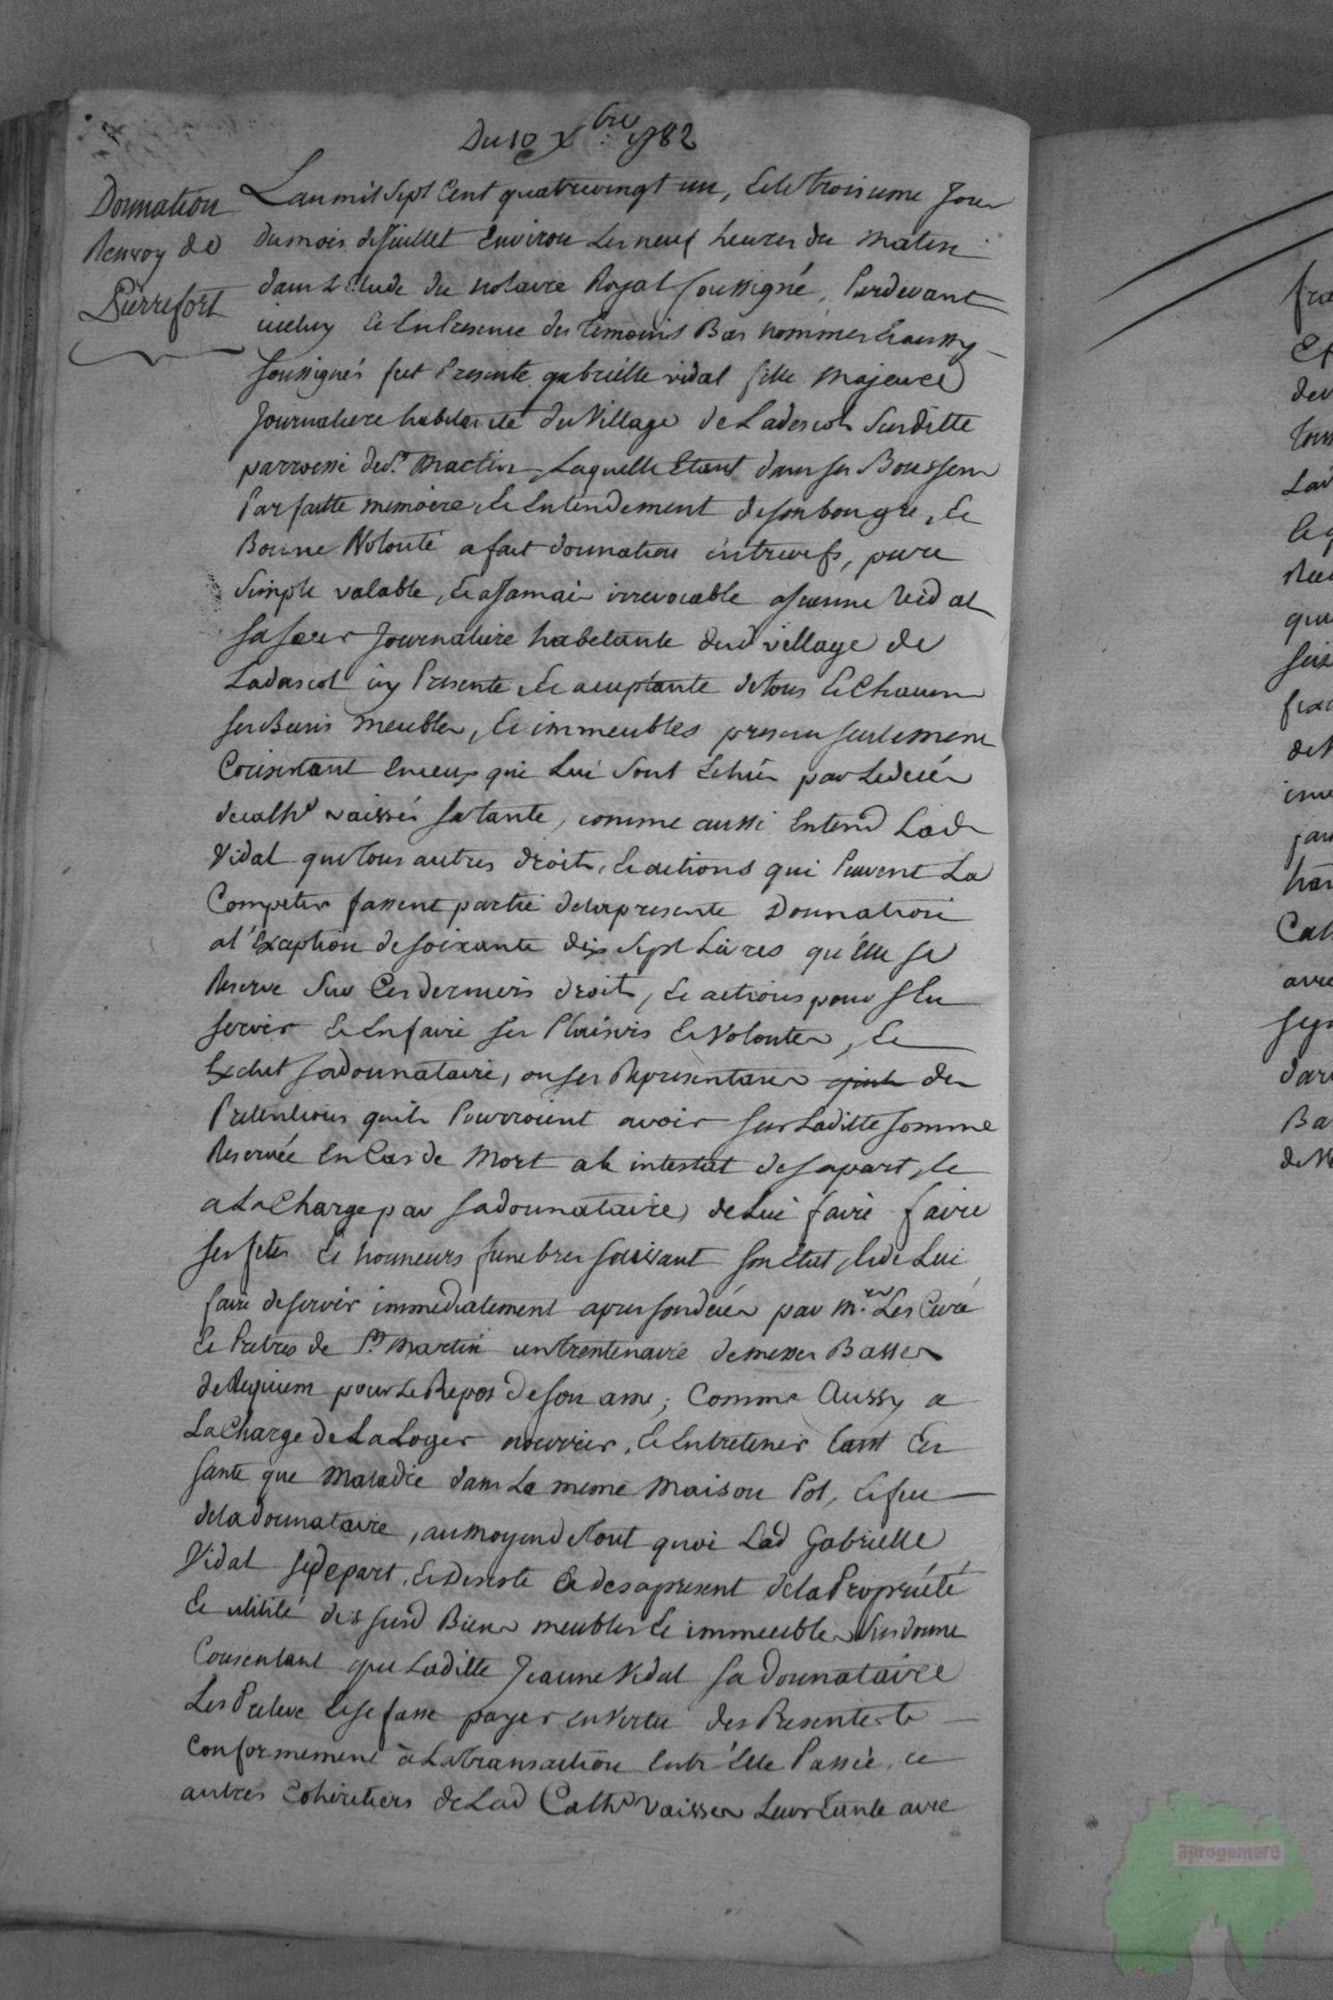 Du 10 Xbre 1782
Donnation
Renvoy de
Pierrefort
L'an mil sept cent quatrevingt un, & le troisieme jour
du mois de Juillet environ les neuf heures du matin
dans l'Etude du notaire Royal soussigné, Pardevant
icelluy & en Presence des temoins Bas nommés & aussy
soussignés fut Presente gabrielle vidal fille majeure
journaliere habitante du village de Ladescols susditte
parroisse de St Martin Laquelle Etant dans ses Bons sens
Parfaitte memoire & Entendement de son bon gre, &
Bonne Volonté a fait donnation entrevifs, pure
simple valable, & a Jamais irrevocable a Jeanne Vidal
sa soeur Journaliere habitante dud village de
Ladascol icy Presente & acceptante de tous & Chacuns
ses Biens meubles, & immeubles presens seulement
Consistant en ceux qui Lui sont Echus par Le decés
de cathe vaissés sa tante, comme aussi Entend Lad
Vidal que tous autres droits, & actions qui Peuvent La
Competer fassent partie de la presente Donnation
a l'Exception de soixante dix sept Livres qu'elle se
Reserve sur Ces derniers droits, & actions pour s'en
servir & En faire ses Plaisirs & Volontés, &
Exclut sa donnataire, ou ses Representans des
Pretentions qu'ils Pourroient avoir sur Laditte somme
Reservée En Cas de Mort ab intestat de sa part, &
a La Charge par sa donnataire de Lui faire faire
ses fetes & honneurs funebres suivant son Etat, & de Lui
faire deservir immediatement apres son decés par Mrs Les Curé
& Pretres de St Martin un trentenaire de messes Basses
de Requiem pour Le Repos de son ame; Comme Aussy a
La Charge de La Loger nourrir, & Entretenir tant En
santé que Maladie dans La meme Maison Pot, & feu
de la donnataire, au moyen de tout quoi Lad Gabrielle
Vidal se depart, & desiste & des a present de la Propriété
& utilité des susd Biens meubles & immeubles sus donnés
Consentant que Laditte Jeanne Vidal sa Donnataire
Les Preleve & se fasse payer en Vertu des Presentes &
Conformement à La transaction Entr'Elle Passée, &
autres Coheritiers de Lad Cathe Vaisses Leur tante avec
aprogemere